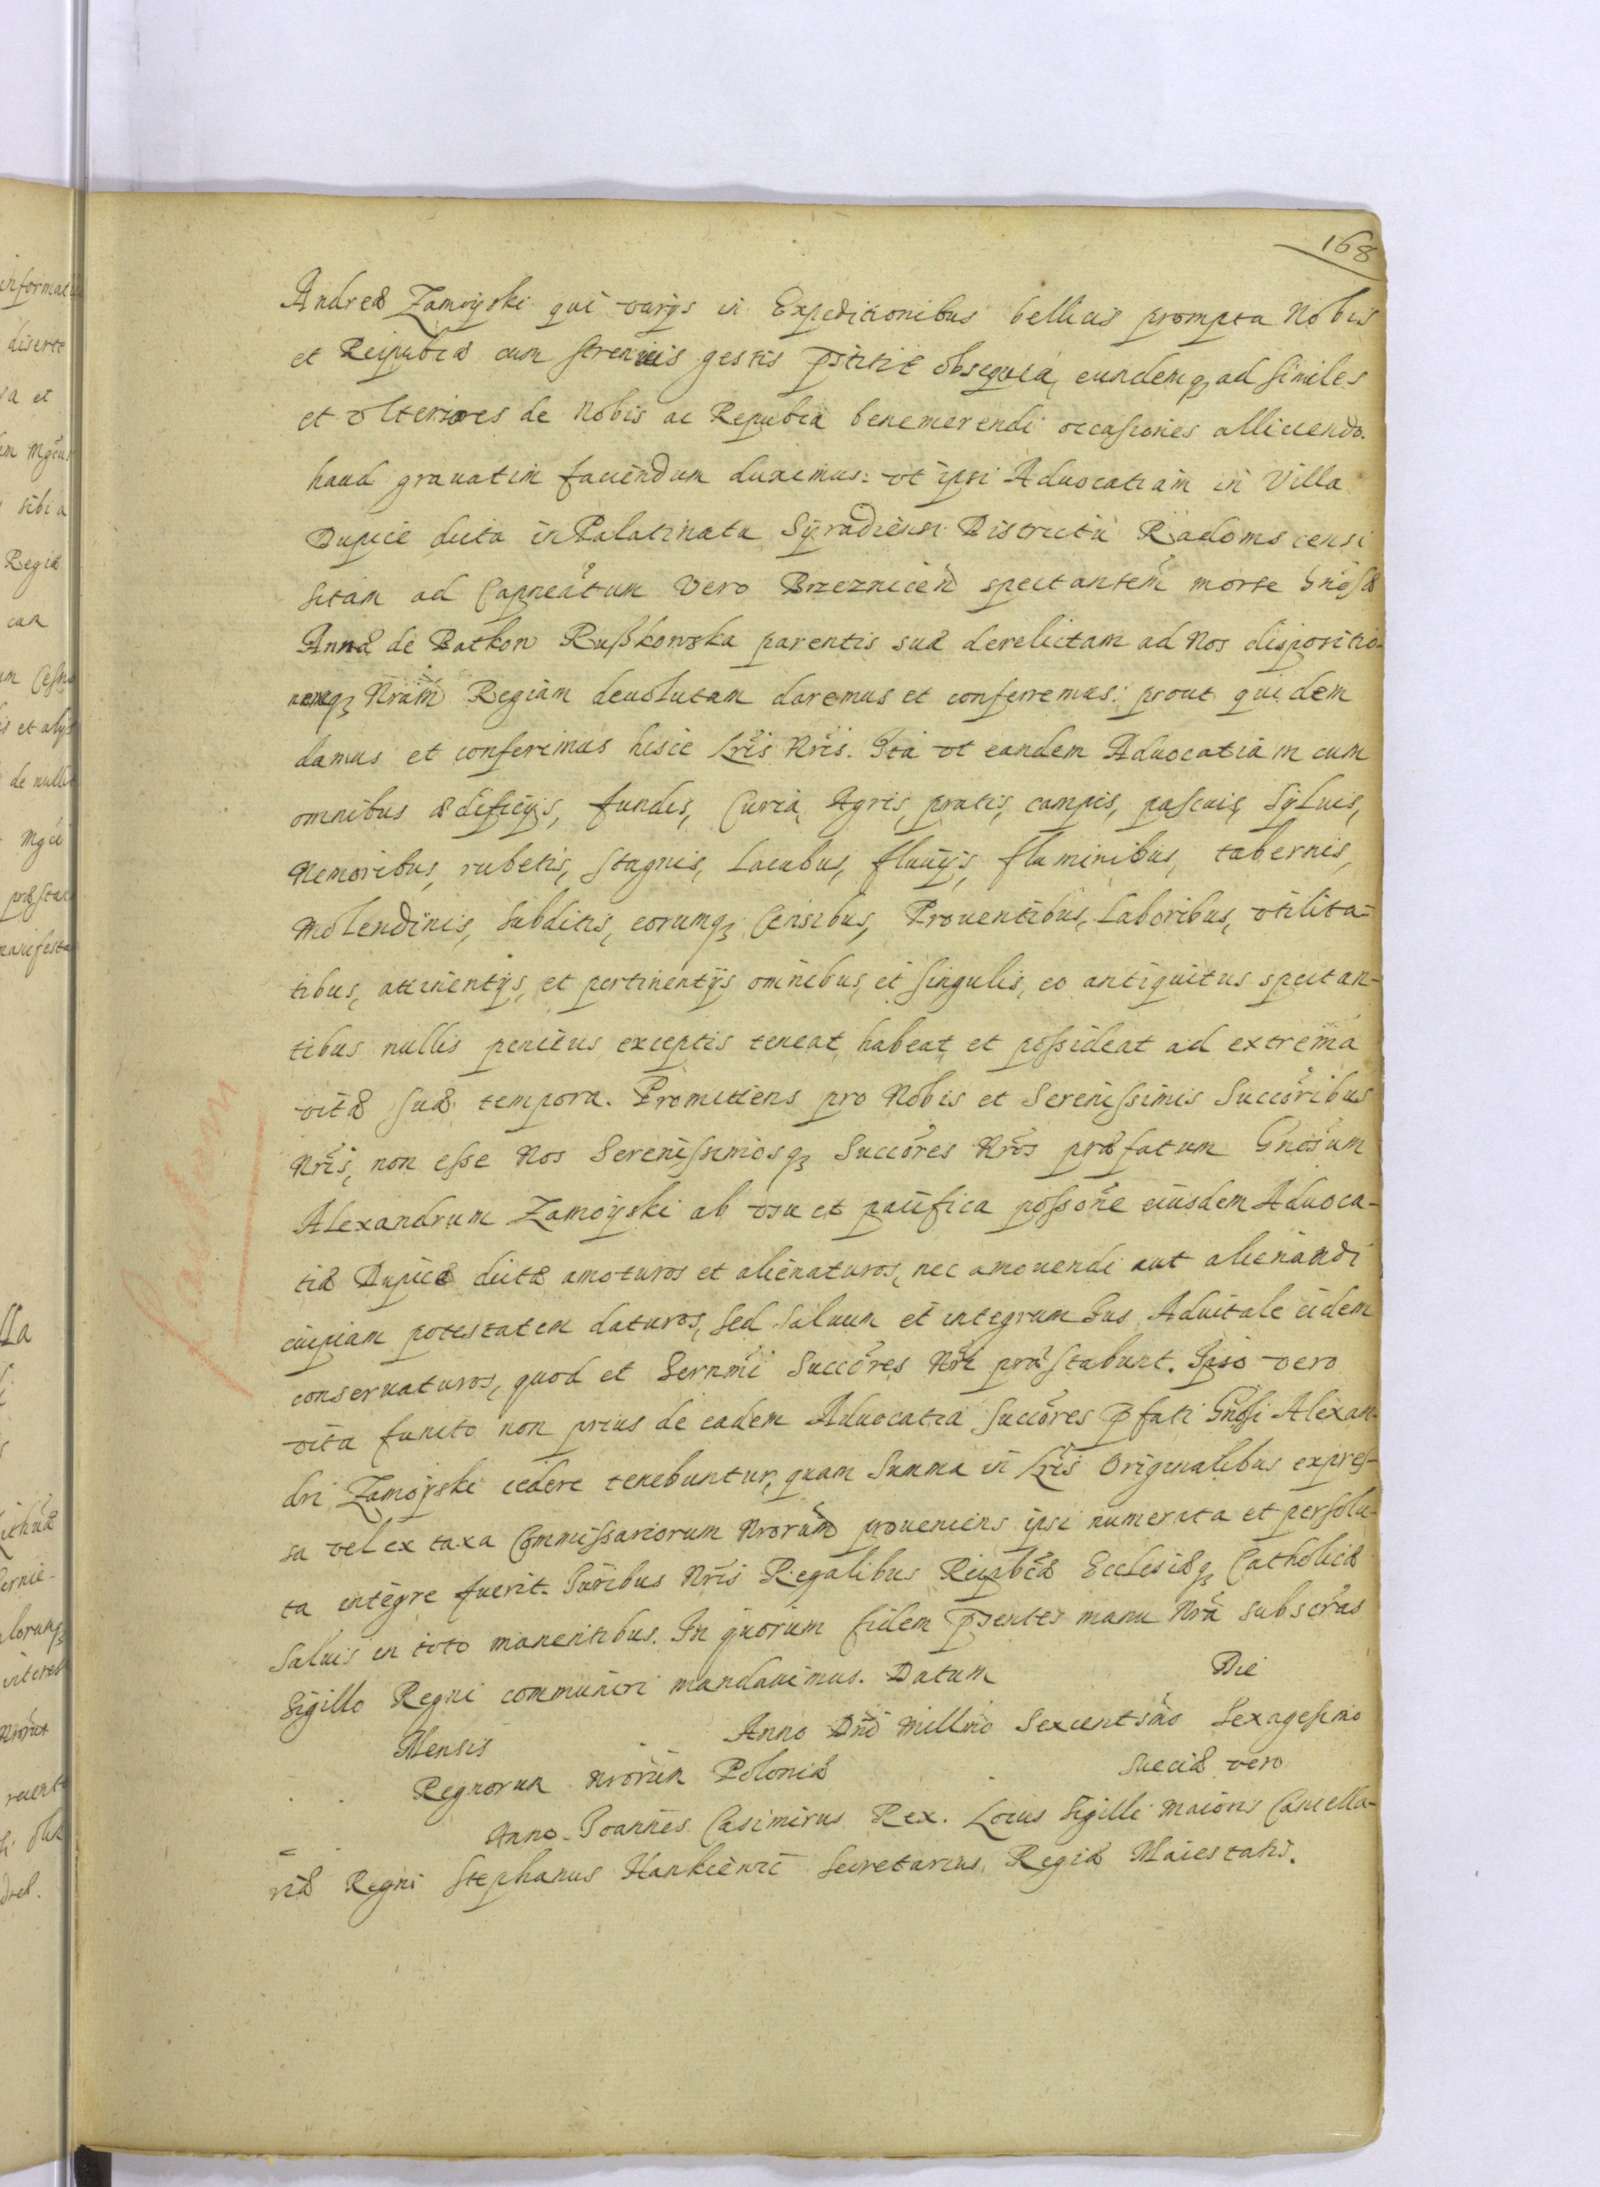 168
Andreæ Zamoyski qui varÿs in Expeditionibus bellicis prompta Nobis
et Reipubcæ cum strenuis gestis pstitit obsequia, eundemq₃ ad similes
et vlteriores de Nobis ac Repubca benemerendi occasiones alliciendo.
haud grauatim faciendum duximus: vt ipsi Aduocatiam in Villa
Dupice dicta in Palatinatu Syradiensi Districtu Radomscensi
sitam ad Capneatum vero Brzeznicen spectantem morte Gnosæ
Annæ de Batkow Rußkowska parentis suæ derelictam ad Nos dispositio-
nemq₃ Nram Regiam deuolutam daremus et conferremus: prout quidem
damus et conferimus hisce Lris Nris. Ita vt eandem Aduocatiam cum
omnibus ædificÿs, fundis, Curia, Agris, pratis, campis, pascuis, Syluis,
Nemoribus, rubetis, stagnis, Lacubus, fluuÿs, fluminibus, tabernis,
Molendinis, Subditis, eorumq₃ Censibus, Prouentibus, Laboribus, vtilita-
tibus, attinentÿs, et pertinentÿs omnibus, et singulis, eo antiquitus spectan-
tibus nullis penitus exceptis teneat, habeat, et possideat ad extrema
vitæ suæ tempora. Promittens pro Nobis et Serenissimis Succoribus
Nris, non esse Nos Serenissimosq₃ Succores Nros præfatum Gnosum
Alexandrum Zamoyski ab vsu et pacifica possone eiusdem Aduoca-
tiæ Dupice dictæ amoturos et alienaturos, nec amouendi aut alienandi
cuipiam potestatem daturos, sed saluum et integrum Ius Aduitale eidem
conseruaturos, quod et Sernmi Succores Nri præstabunt. Ipso vero
vita functo non prius de eadem Aduocatia succores pfati Gnosi Alexan-
dri Zamoyski cedere tenebuntur, quam Summa in Lris Originalibus expres-
sa vel ex taxa Commissariorum Nrorum proueniens ipsi numerata et persolu-
ta integre fuerit. Iuribus Nris Regalibus Reipbcæ Ecclesiæq₃ Catholicæ
saluis in toto manentibus. In quorum fidem psentes manu Nra subscras
Sigillo Regni communiri mandauimus. Datum Die
Mensis Anno Dni Millmo Sexcentsimo Sexagesimo
Regnorum Nrorum Poloniæ Sueciæ vero
Anno. Joannes Casimirus Rex. Locus Sigilli Maioris Cancella-
riæ Regni Stephanus Hankiewic Secretarius Regiæ Maiestatis.